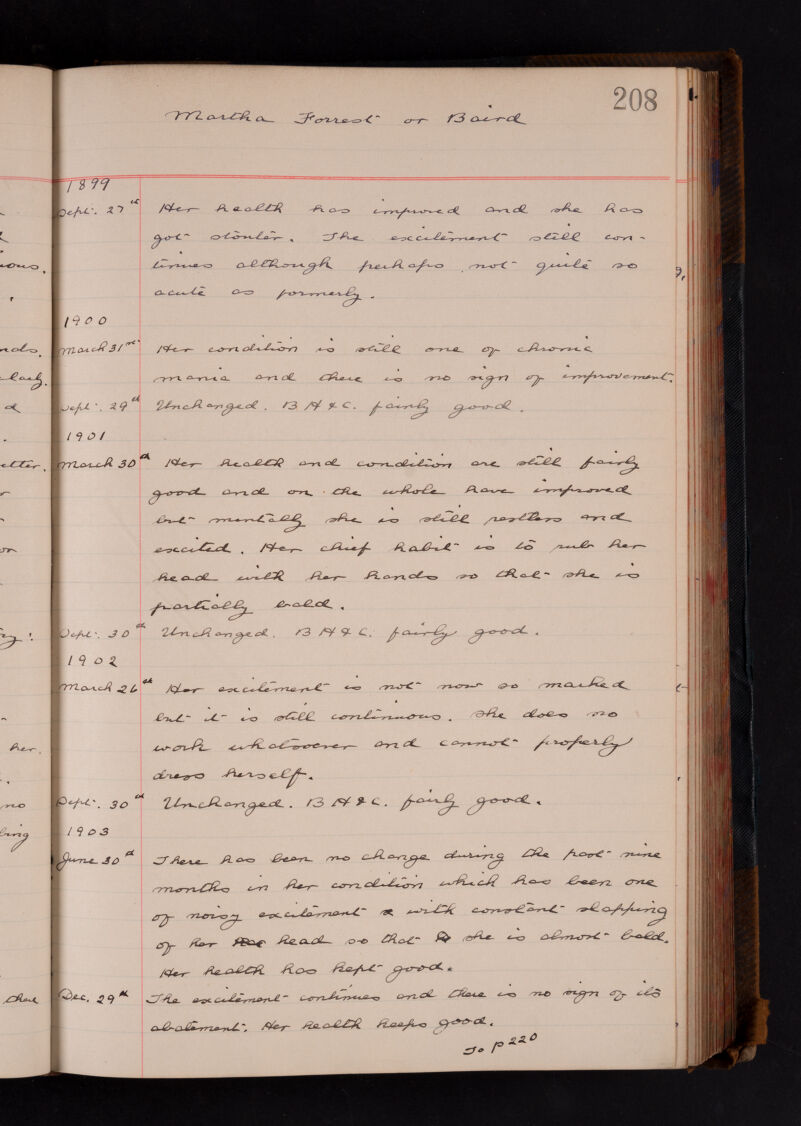 208
Martha Forrest or Baird
1899
Sept. 27th Her health has improved and she has
got stouter. The excitement still con-
tinues although perhaps not quite so
acute as formerly.
1900
March 31st Her condition is still one of chronic
mania and there is no sign of improvement.
Sept. 29th Unchanged. B H & C. fairly good.
1901
March 30th Her health and condition are still fairly
good and on the whole have improved
but mentally she is still restless and
excited. Her chief habit is to rub her
head with her hands so that she is
partially bald.
Sept. 30th Unchanged. B H & C. fairly good.
1902
March 26th Her excitement is not now so marked
but it is still continuous. She does no
work whatsoever and cannot properly
dress herself.
Sept. 30th Unchanged. B H & C. fairly good.
1903
June 30th There has been no change during the past nine
months in her condition which has been one
of noisy excitement with constant slapping
of her head so that she is almost bald.
Her health has kept good.
Dec. 29th The excitement continues and there is no sign of its
abatement. Her health keeps good.
To p 220